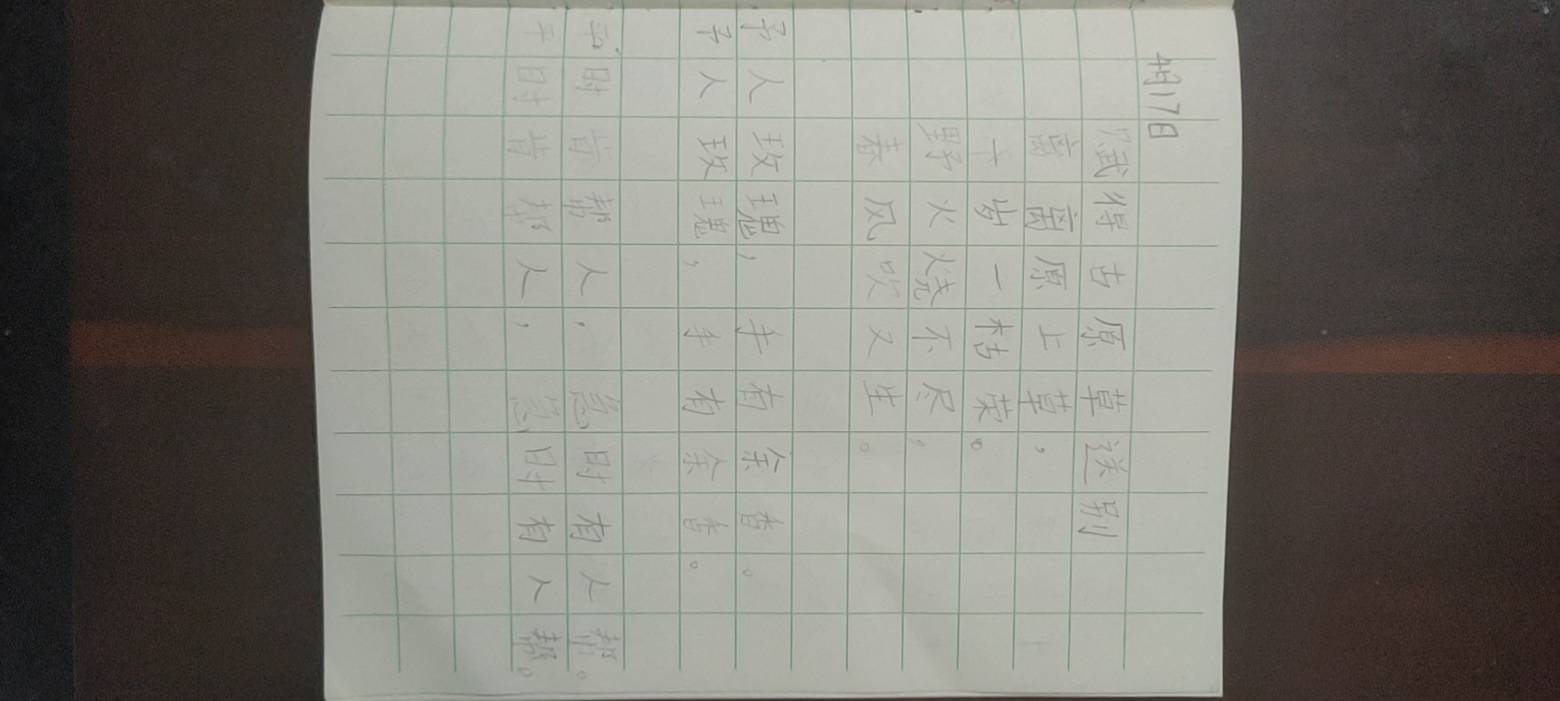 4月17日
赋得古原草送别
离离原上草，
一岁一枯荣。
野火烧不尽，
春风吹又生。
予人玫瑰，手有余香。
予人玫瑰，手有余香。
平时肯帮人，急时有人帮。
平时肯帮人，急时有人帮。